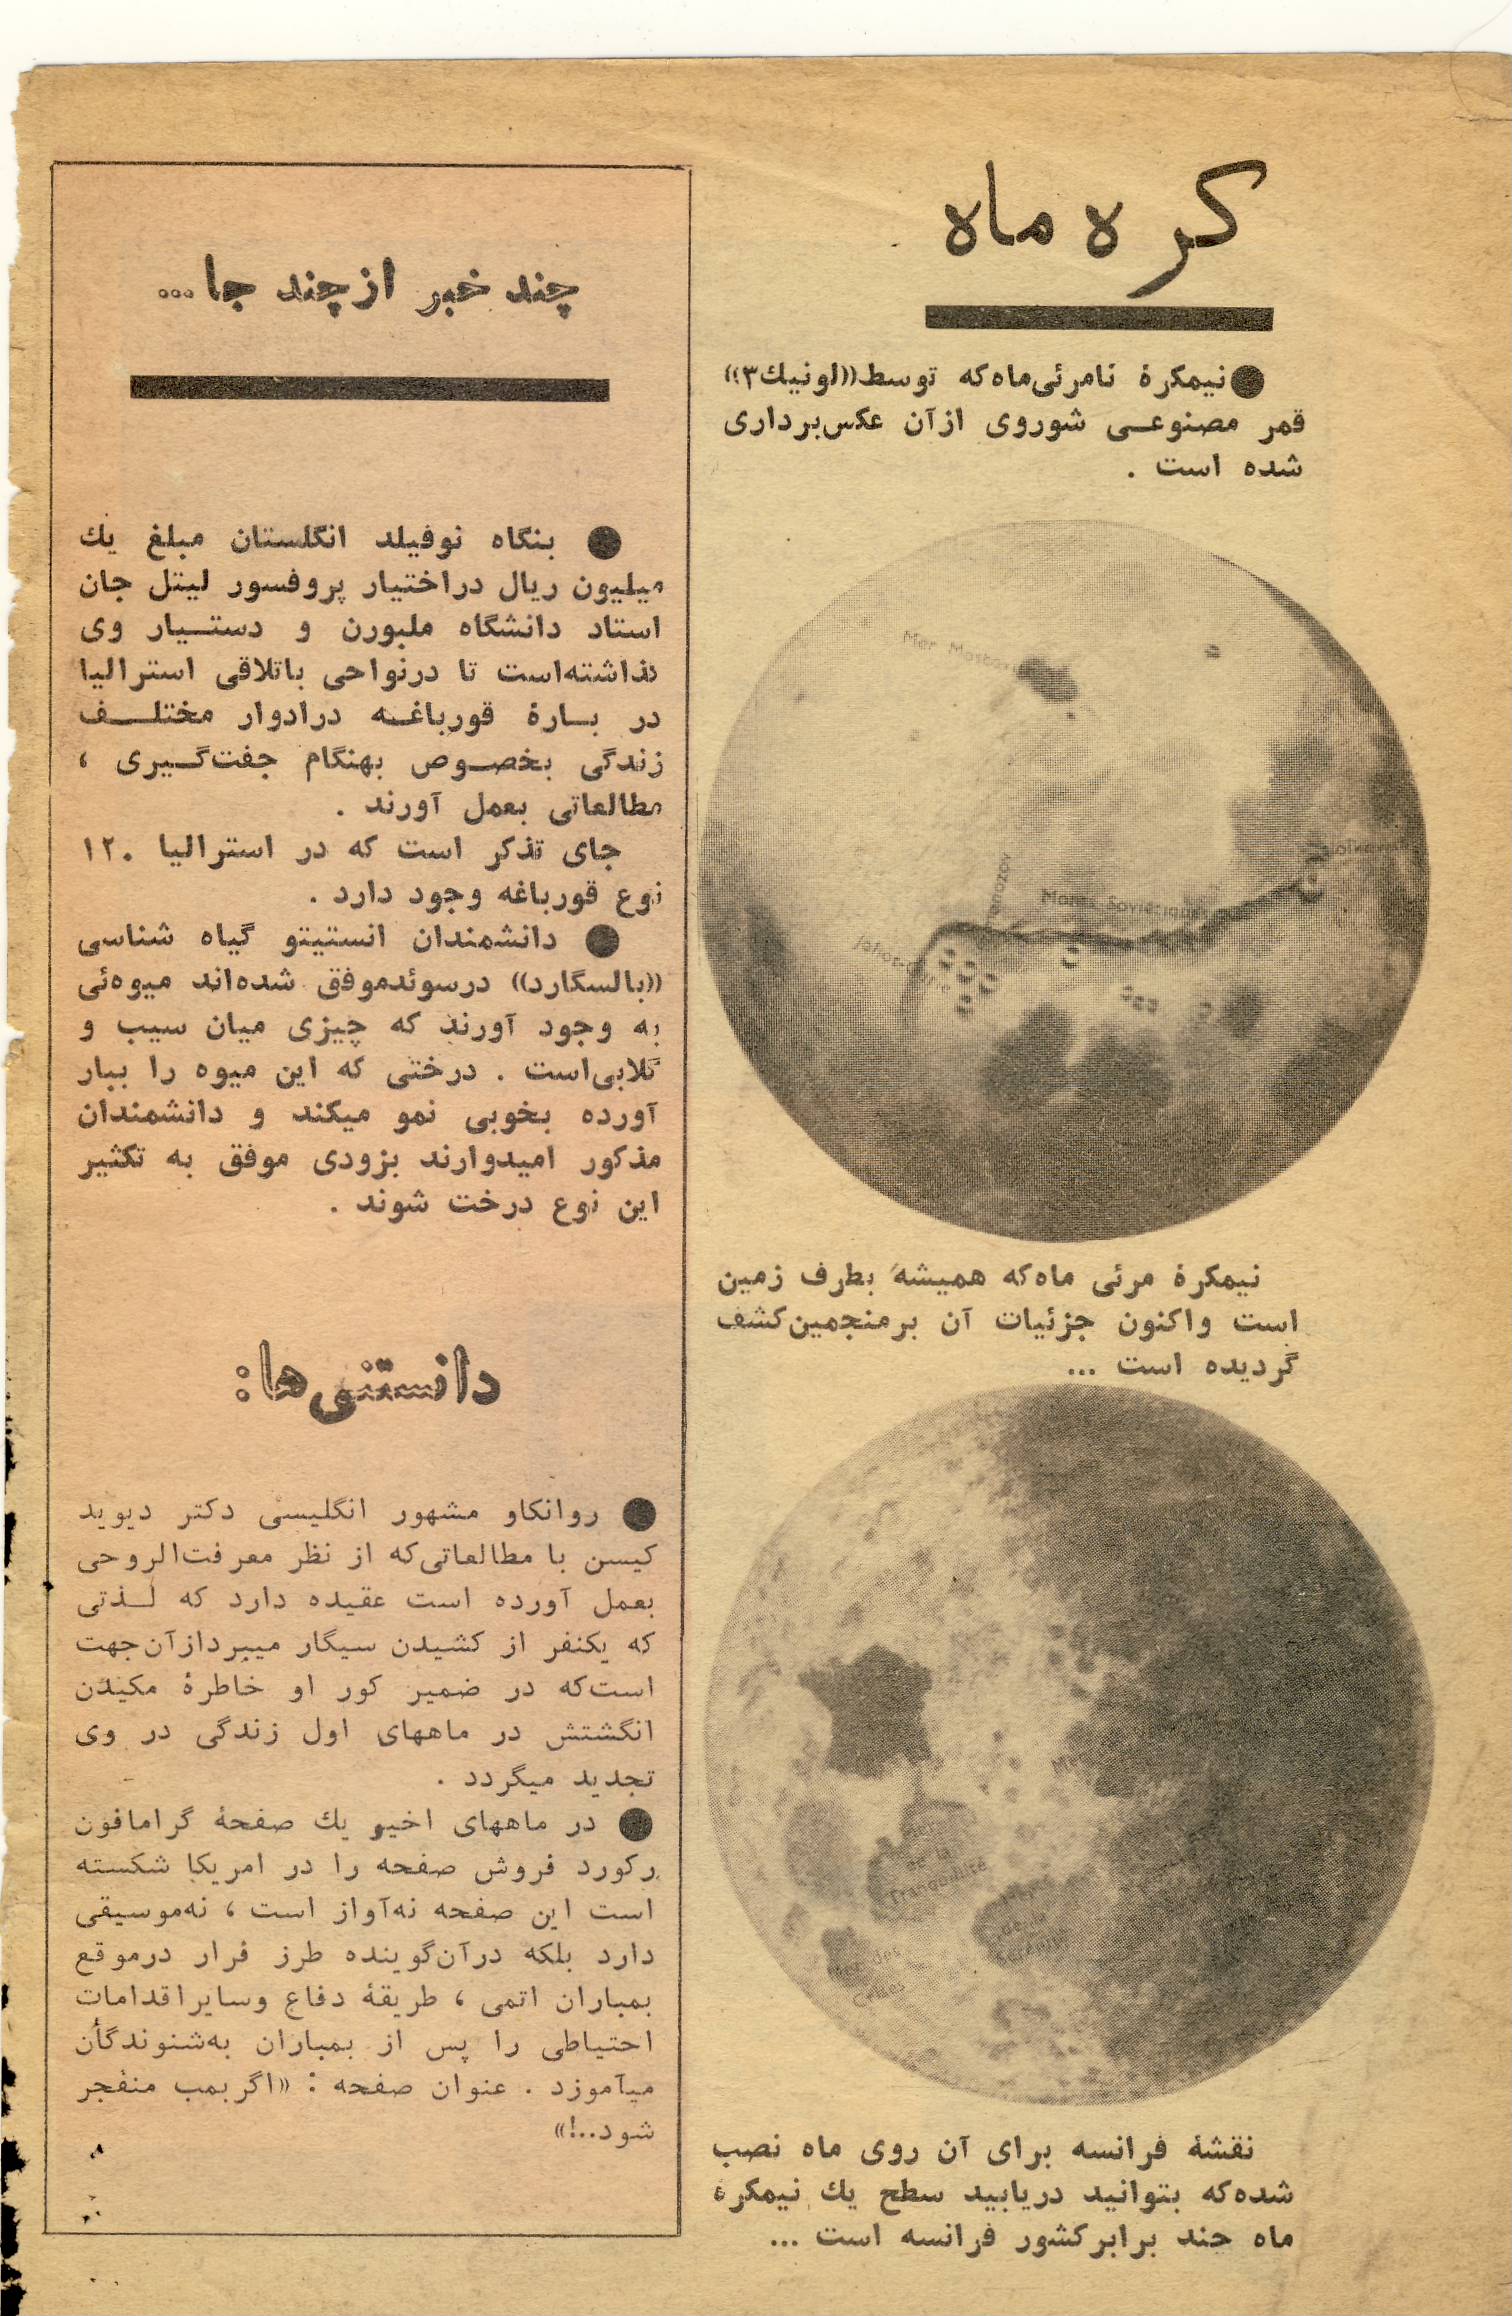 کره ماه
● نیمکرهٔ نامرئی‌ماه‌که توسط((لونیك۳))
قمر مصنوعـی شوروی ازآن عکس‌برداری
شده است .
Mer Moscou
Monts Soviétiques
نیمکرهٔ مرئی ماه‌که همیشه بطرف زمین
است واکنون جزئیات آن برمنجمین‌کشف
گردیده است ...
de la
Tranquillité
de la
Sérénité
Mer des
Crises
نقشهٔ فرانسه برای آن روی ماه نصب
شده‌که بتوانید دریابید سطح یك نیمکرهٔ
ماه چند برابرکشور فرانسه است ...
چند خبر از چند جا...
● بنگاه نوفیلد انگلستان مبلغ یك
میلیون ریال دراختیار پروفسور لیتل جان
استاد دانشگاه ملبورن و دستـیار وی
گذاشته‌است تا درنواحی باتلاقی استرالیا
در بـارهٔ قورباغـه درادوار مختلـف
زندگی بخصـوص بهنگام جفت‌گـیری ،
مطالعاتی بعمل آورند .
جای تذکر است که در استرالیا ۱۲۰
نوع قورباغه وجود دارد .
● دانشمندان انستیتو گیاه شناسی
((بالسگارد)) درسوئدموفق شده‌اند میوه‌ئی
به وجود آورند که چیزی میان سیب و
گلابی‌است . درختی که این میوه را ببار
آورده بخوبی نمو میکند و دانشمندان
مذکور امیدوارند بزودی موفق به تکثیر
این نوع درخت شوند .
دانستنی‌ها:
● روانکاو مشهور انگلیسی دکتر دیوید
کیسن با مطالعاتی‌که از نظر معرفت‌الروحی
بعمل آورده است عقیده دارد که لـذتی
که یکنفر از کشیدن سیگار میبردازآن‌جهت
است‌که در ضمیر کور او خاطرهٔ مکیدن
انگشتش در ماههای اول زندگی در وی
تجدید میگردد .
● در ماههای اخیر یك صفحهٔ گرامافون
رکورد فروش صفحه را در امریکا شکسته
است این صفحه نه‌آواز است ، نه‌موسیقی
دارد بلکه درآن‌گوینده طرز فرار درموقع
بمباران اتمی ، طریقهٔ دفاع وسایراقدامات
احتیاطی را پس از بمباران به‌شنوندگان
میآموزد . عنوان صفحه : ((اگربمب منفجر
شود..!))